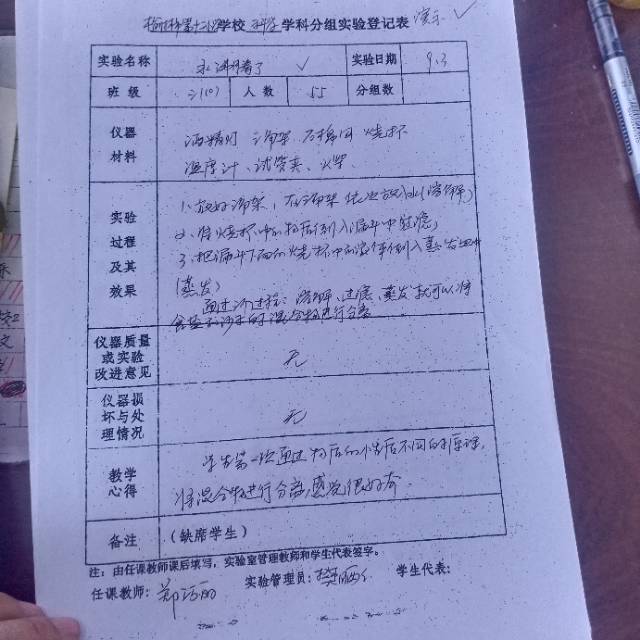 榆林市第十二小学校 科学 学科分组实验登记表 演示
实验名称 水沸腾了 实验日期 9.3
班级 三(10) 人数 55 分组数
仪器材料 酒精灯 铁架 石棉网 烧杯
温度计、试管夹、火柴
实验过程及其效果
2、将烧杯中的物质倒入漏斗中过滤;
3、把漏斗下面的烧杯中的液体倒入蒸发皿中
(蒸发)
通过过程:溶解、过滤、蒸发就可以将
食盐和沙子的混合物进行分离
仪器质量或实验改进意见 无
仪器损坏与处理情况 无
教学心得 学生第一次通过物质的性质不同的原理,
将混合物进行分离,感觉很好奇
备注 (缺席学生)
注:由任课教师课后填写,实验室管理教师和学生代表签字。
任课教师: 实验管理员: 学生代表: